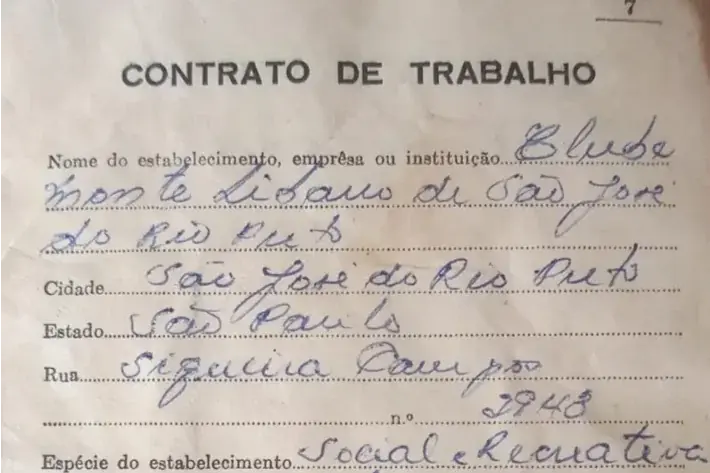 7
CONTRATO DE TRABALHO
Nome do estabelecimento, emprêsa ou instituição Clube
Monte Libano de São José
do Rio Preto
Cidade São José do Rio Preto
Estado São Paulo
Rua Siqueira Campos
n.º 2948
Espécie do estabelecimento Social e Recreativa